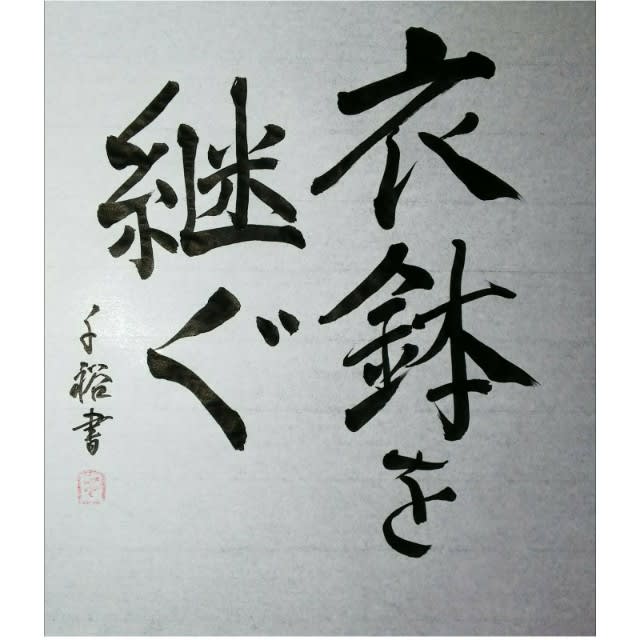 衣鉢を
継ぐ
千裕書